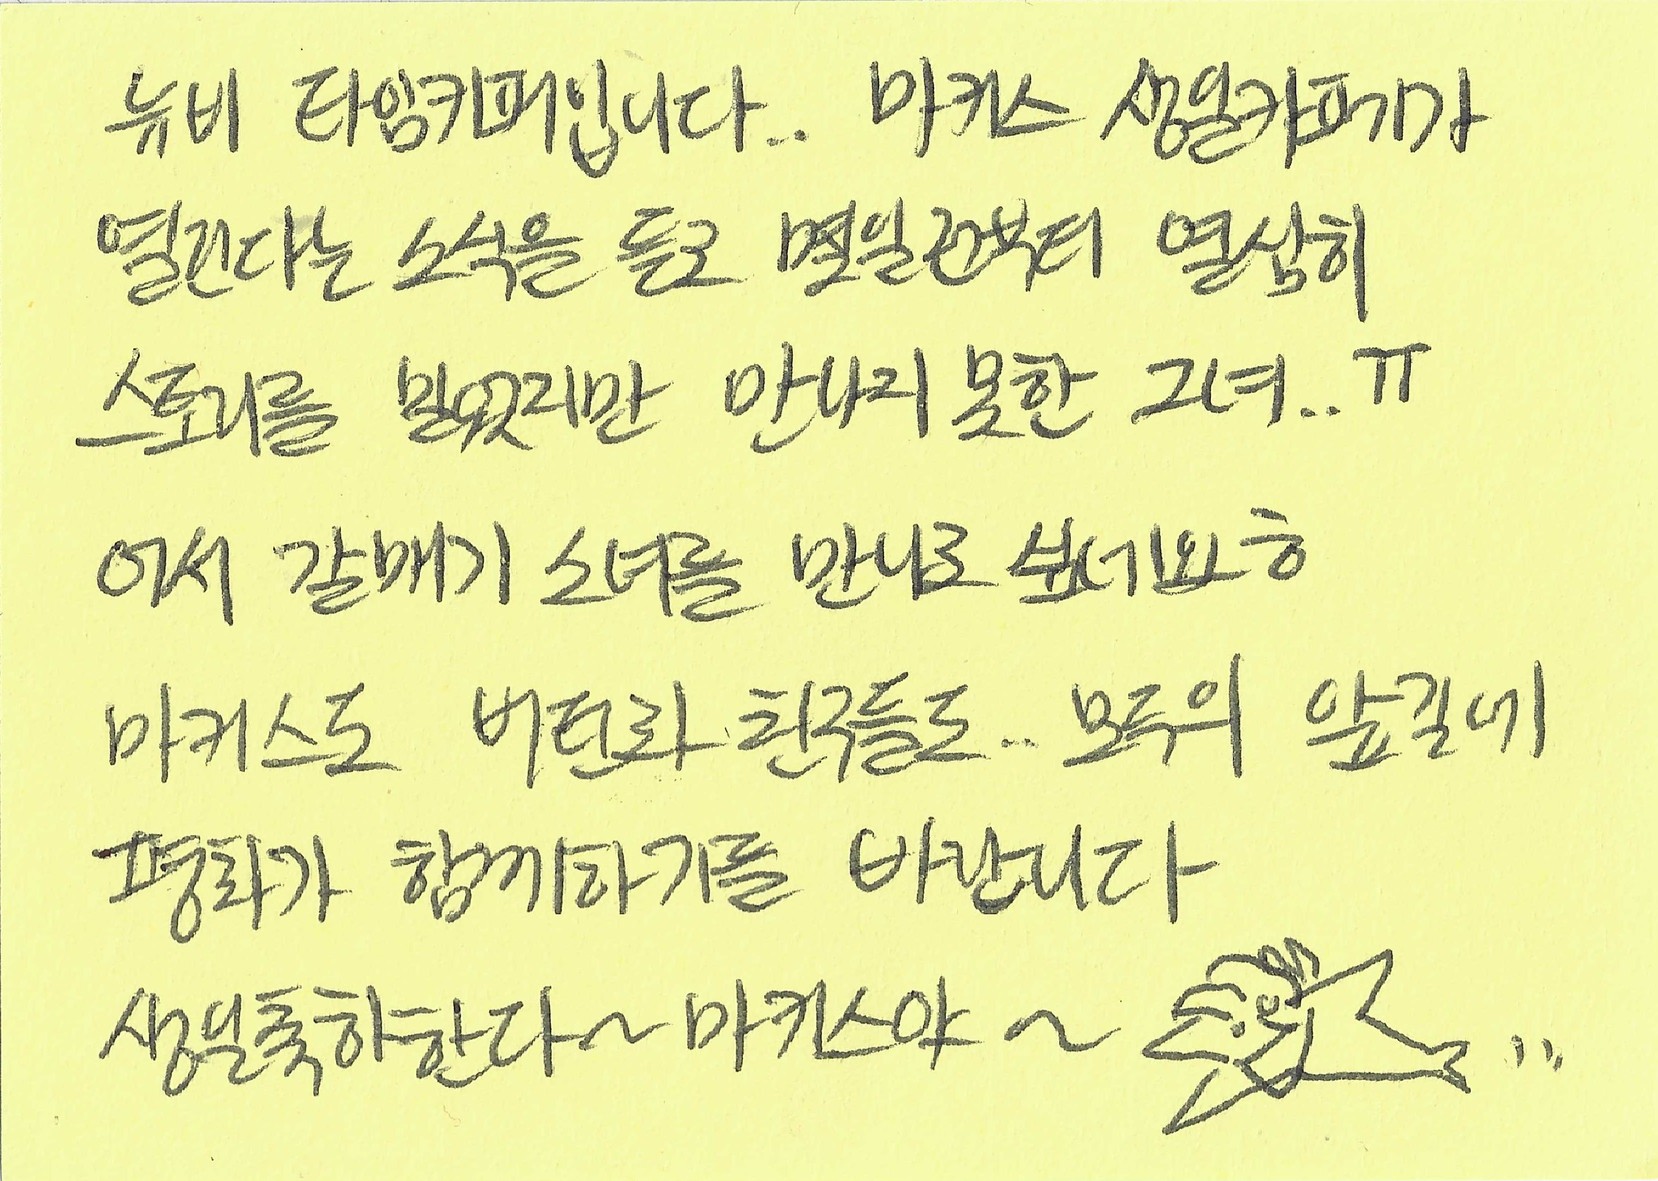 뉴비 타임키퍼입니다.. 마커스 생일카페가
열린다는 소식을 듣고 몇일전부터 열심히
스토리를 밀었지만 만나지 못한 그녀..ㅠ
어서 갈매기 소녀를 만나고 싶네요ㅎ
마커스도 버틴과 친구들도.. 모두의 앞길에
평화가 함께하기를 바랍니다
생일축하한다~ 마커스야 ~